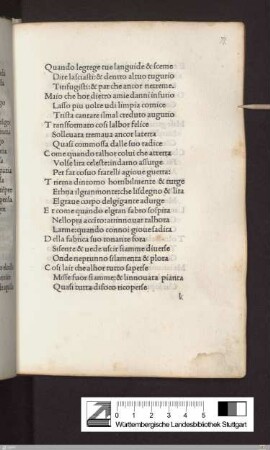 Quando legrege tue languide & sceme
Dire lasciasti: & dentro altuo tugurio
Trifugisti: & par che ancor netreme.
Maio che hor dietro amie danni infurio
Lasso piu uolte udi limpia cornice
Trista cantare simal creduto augurio
Transformato cosi lalbor felice
Solleuata tremaua ancor laterra
Quasi commossa dalle suo radice
Come quando talhor colui che atterra
Volse lire celeste: indarno assurge
Per far cosuo fratelli agioue guerra:
Trema dintorno horribilmente & turge
Ethna ilgran monte: che lisdegno & lira
Elgraue corpo delgigante adurge
Et come quando elgran fabro sospira
Nellopra accioraro in noue talhora
Larme: quando con noi gioue sadira
Della fabrica suo tonante fora
Sisente & uede uscir fiamme diuerse
Onde neptunno silamenta & plora
Cosi lair che alhor tutto saperse
Misse fuor fiamme: & linnouata pianta
Quasi tutta di foco ricoperse
k
0 1 2 3 4 5
Württembergische Landesbibliothek Stuttgart